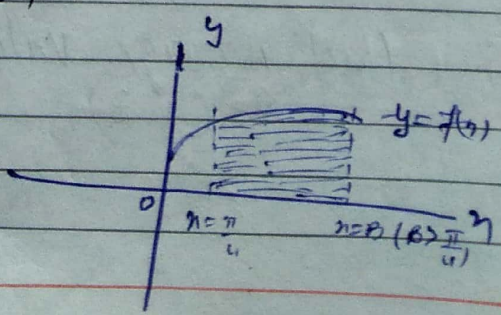 y
y = f(x)
0
x = π/4
x = β (β > π/4)
x